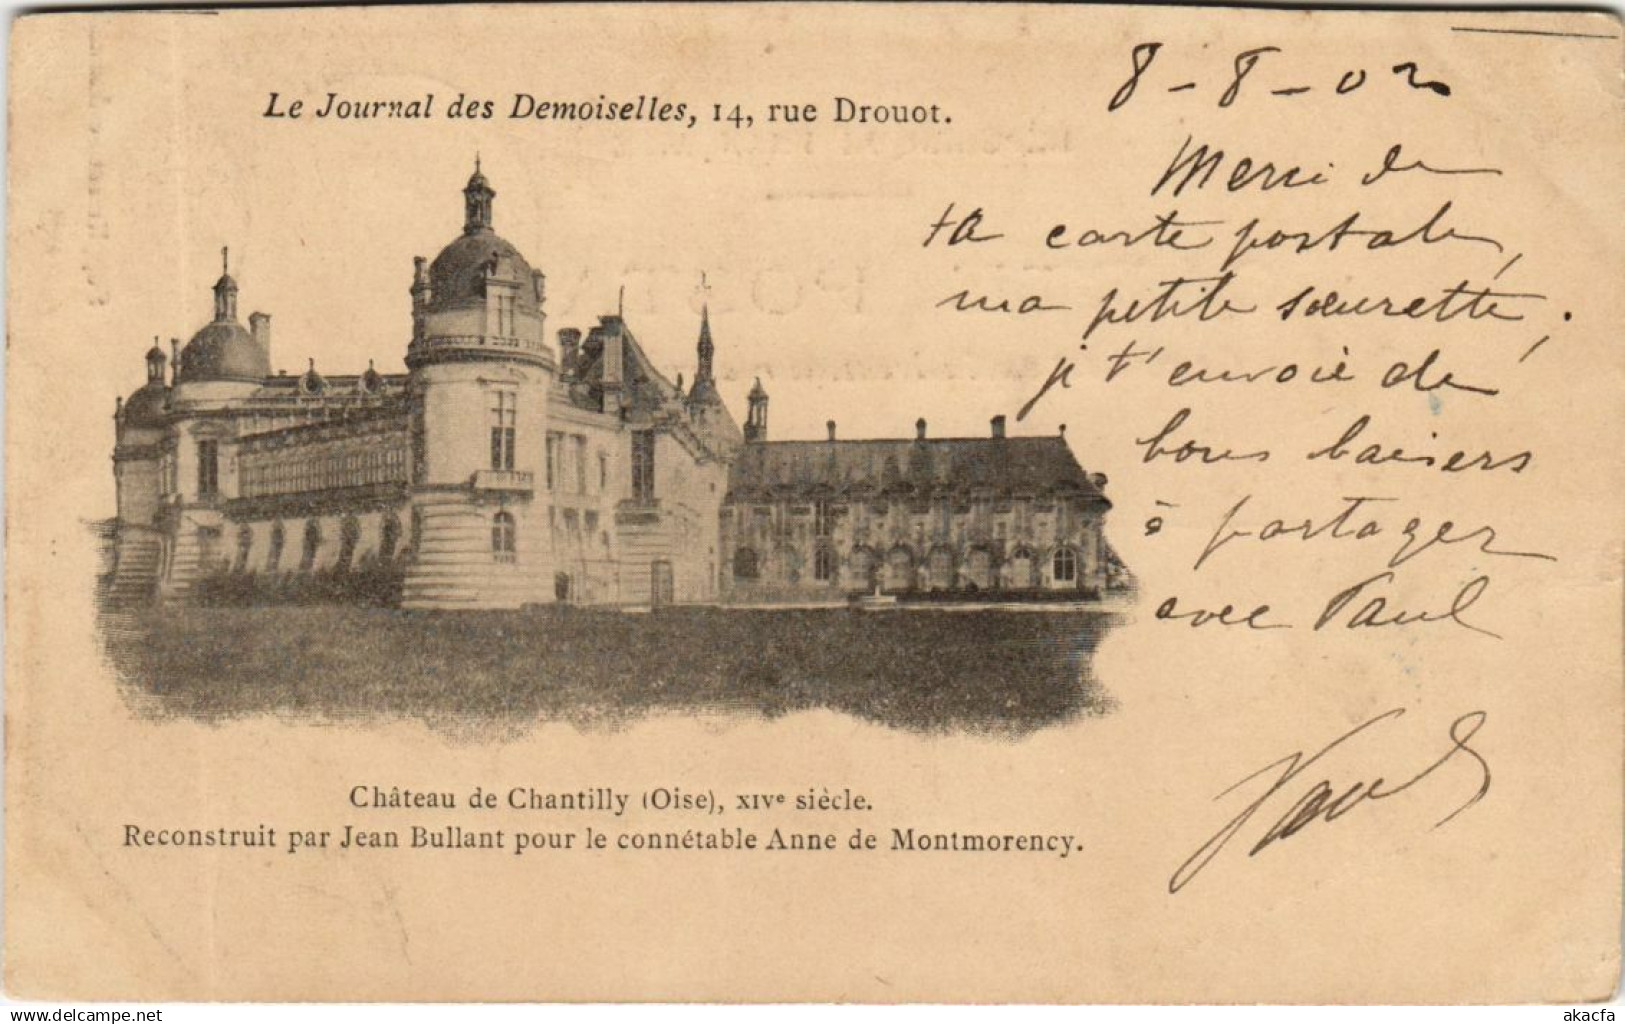 Le Journal des Demoiselles, 14, rue Drouot.
8 - 8 - 02
Merci de
ta carte postale,
ma petite sœurette ;
je t'envoie de
bons baisers
à partager
avec Paul
Château de Chantilly (Oise), XIVe siècle.
Reconstruit par Jean Bullant pour le connétable Anne de Montmorency.
delcampe.net
akacfa